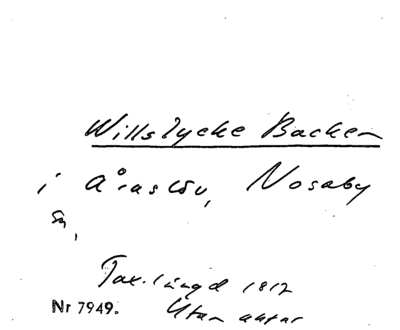 Willslycke Backen
i Åraslöv, Nosaby
sn,
Tax.längd 1812
Nr 7949. Utan antar